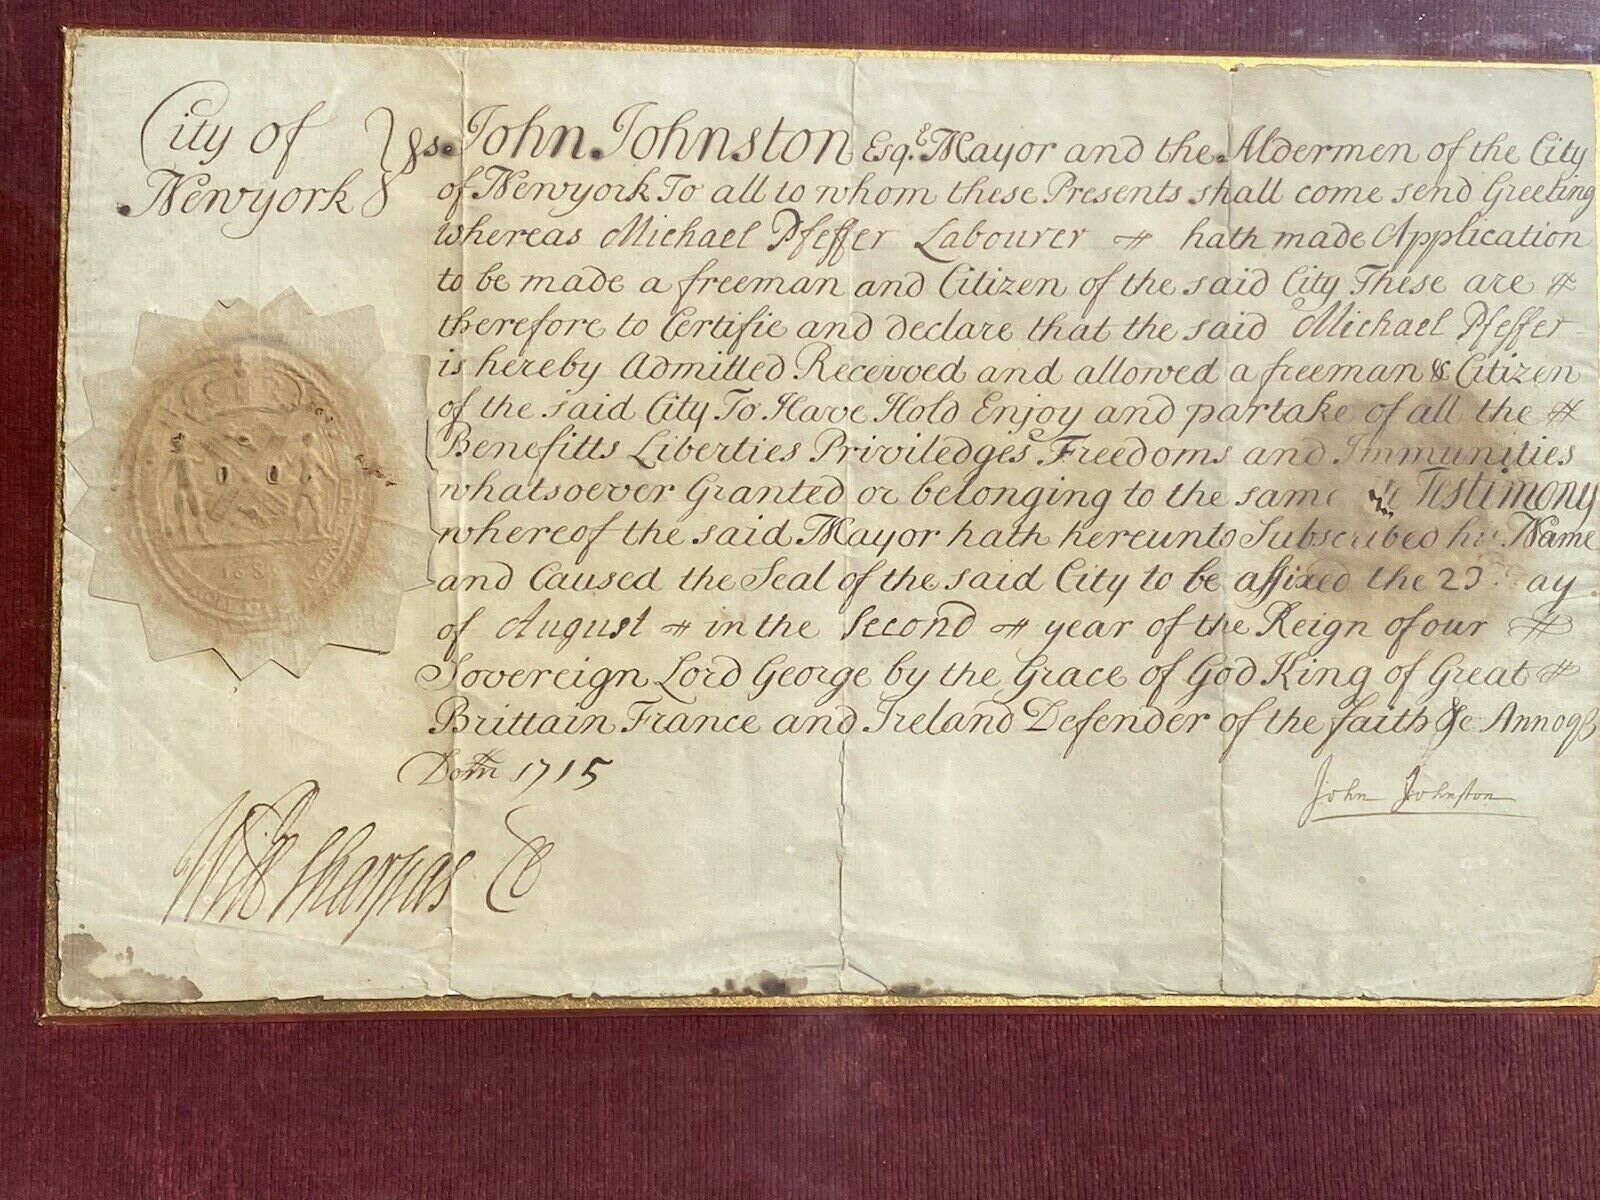 City of
Newyork
ss. John Johnston Esqr. Mayor and the Aldermen of the City
of Newyork To all to whom these Presents shall come send Greeting
whereas Michael Pfeffer Labourer hath made Application
to be made a freeman and Citizen of the said City These are
therefore to Certifie and declare that the said Michael Pfeffer
is hereby Admitted Received and allowed a freeman & Citizen
of the said City To Have Hold Enjoy and partake of all the
Benefitts Liberties Priviledges Freedoms and Immunities
whatsoever Granted or belonging to the same In Testimony
whereof the said Mayor hath hereunto Subscribed his Name
and Caused the Seal of the said City to be affixed the 23 Day
of August in the Second year of the Reign of our
Sovereign Lord George by the Grace of God King of Great
Brittain France and Ireland Defender of the faith &c Annoq
Dom 1715
John Johnston
Will Sharpas Cl
168